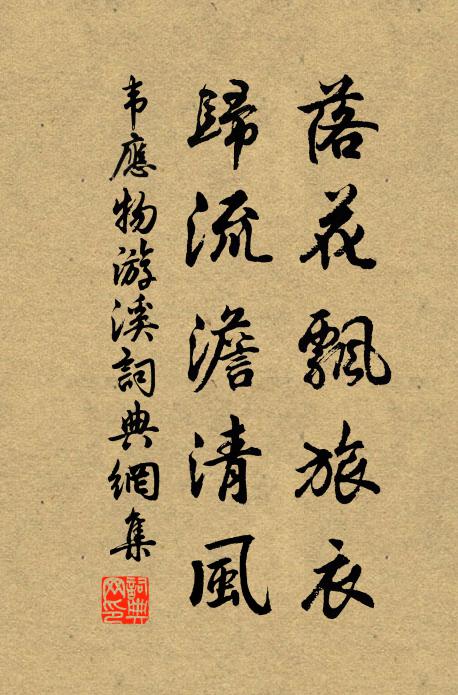 落花飄旅衣
歸流澹清風
韦應物游溪詞典網集
詞典网印